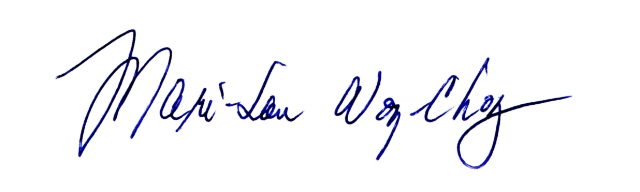 Mari-Lou Wong-Choy